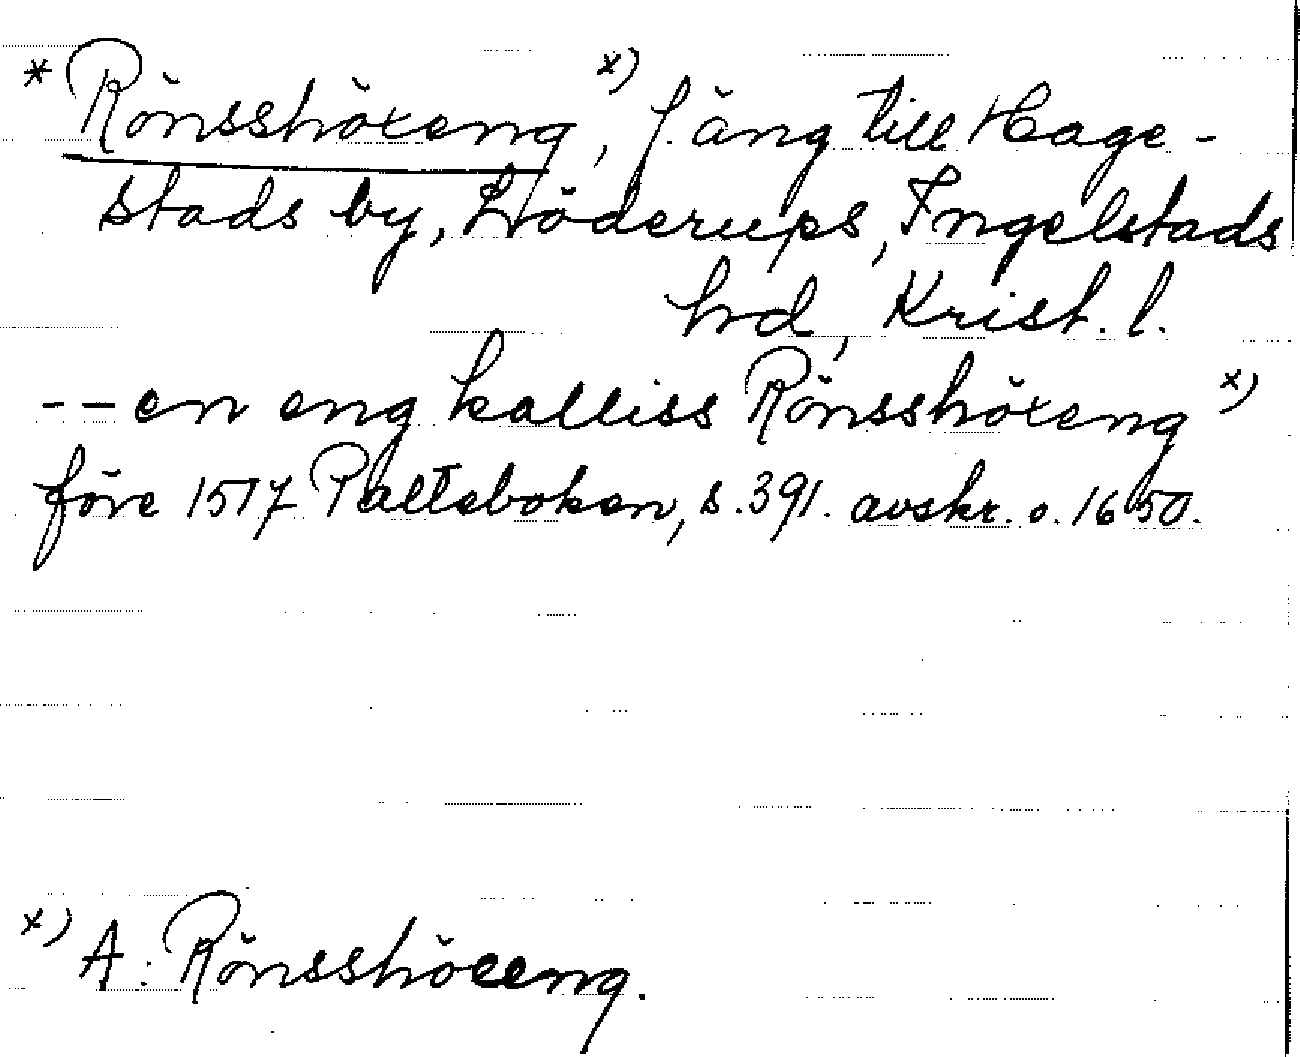 * Rönsshöxeng x), f. äng till Hage-
stads by, Löderups, Ingelstads
hrd, Krist. l.
-- en eng kalliss Rönsshöxeng x)
före 1517 Palteboken, s. 391. avskr. o. 1650.
x) A: Rönsshöeeng.